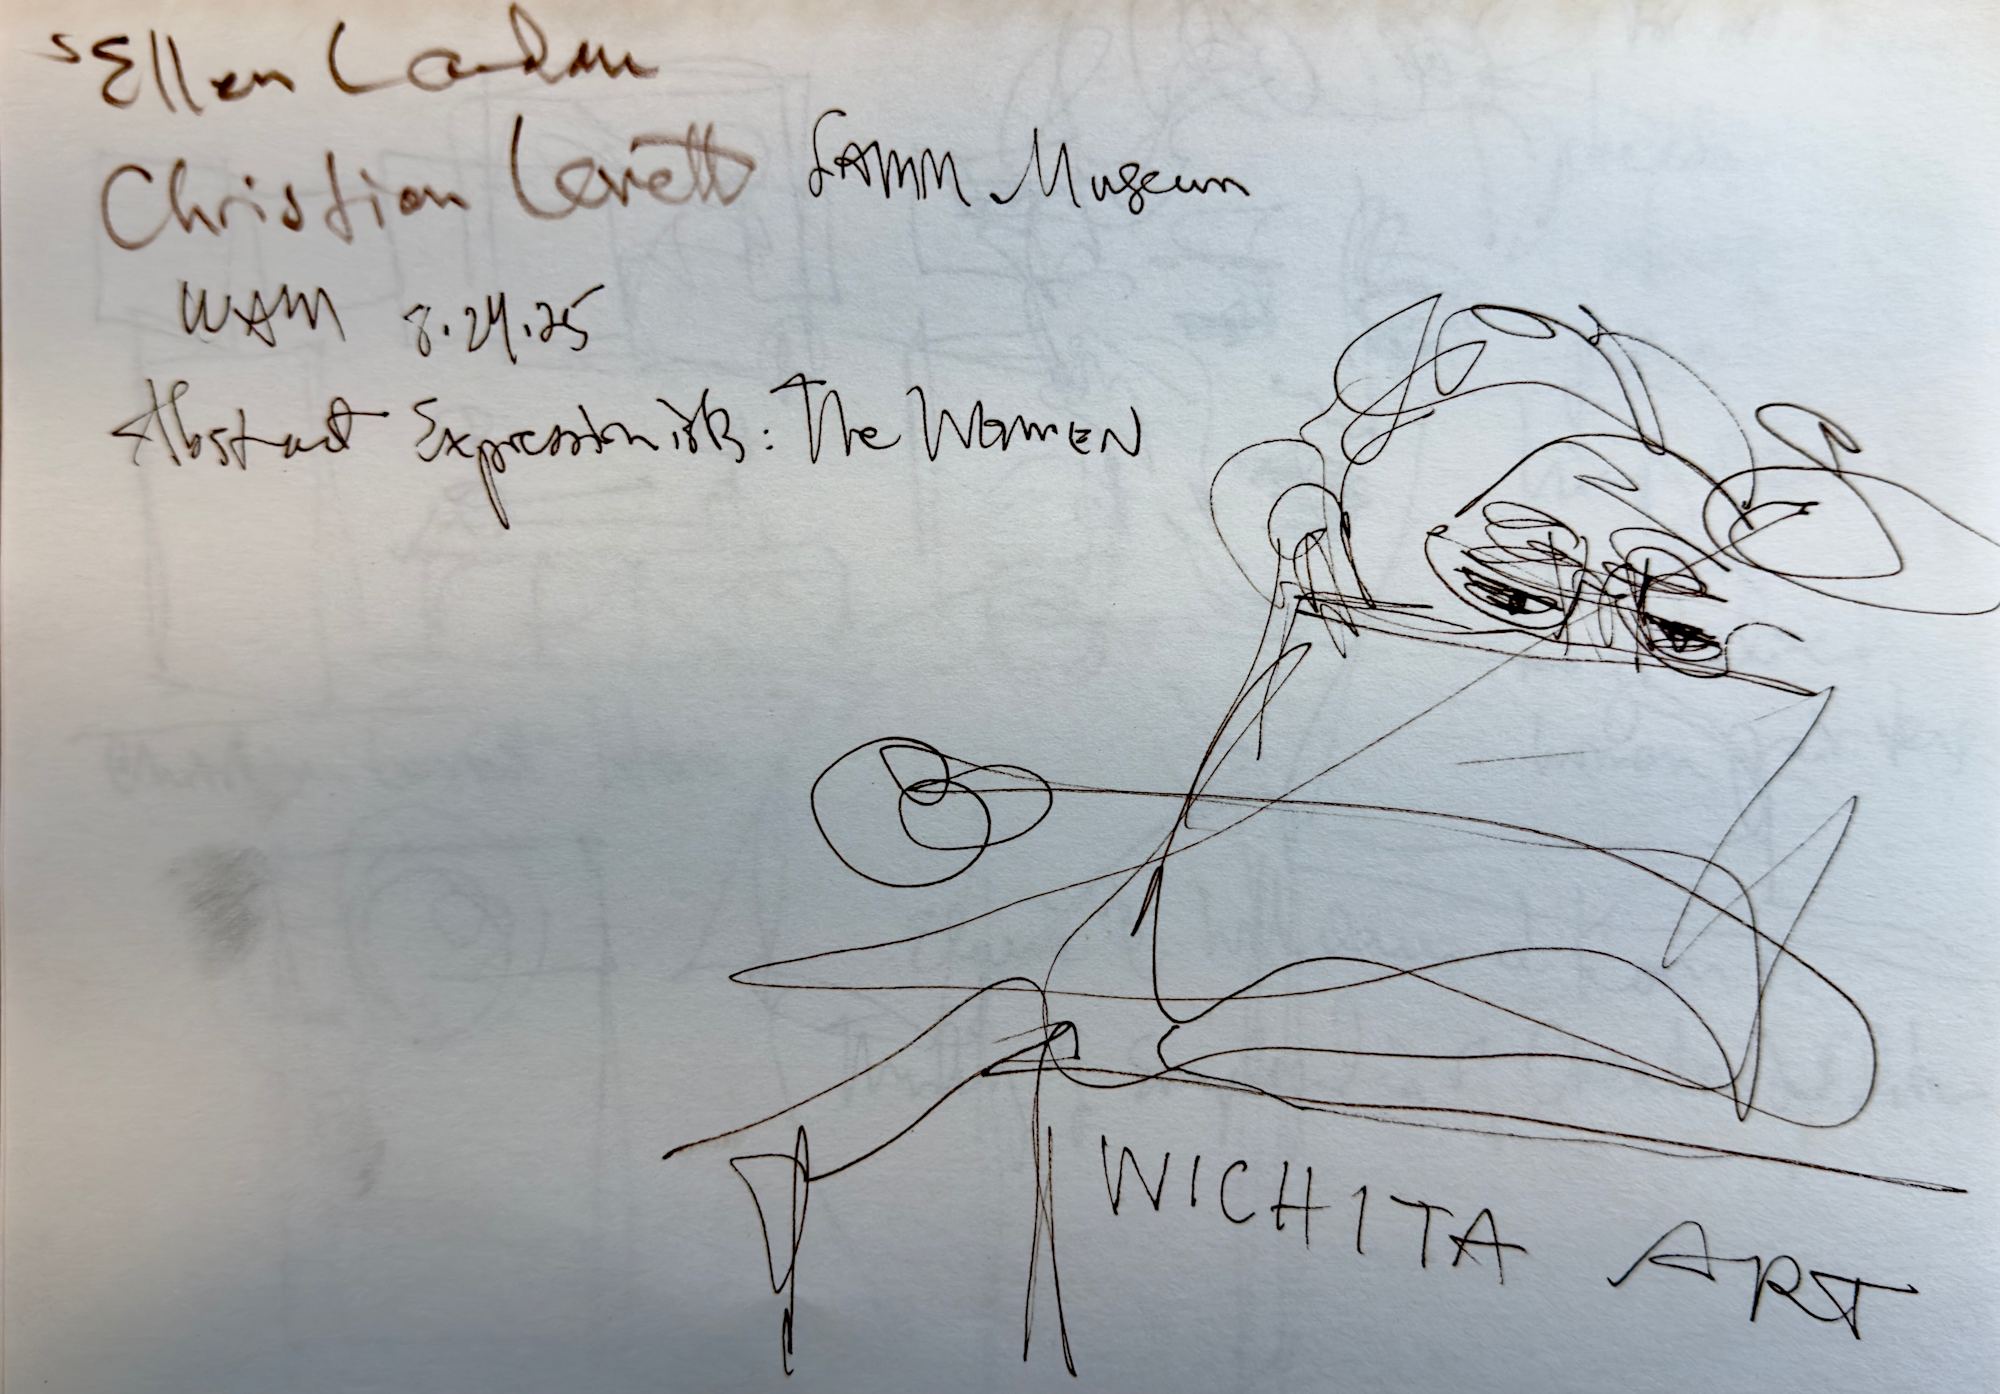 Ellen Landau
Christian Levett FAMM Museum
WAM 8.24.25
Abstract Expressionists: The WOMEN
WICHITA ART